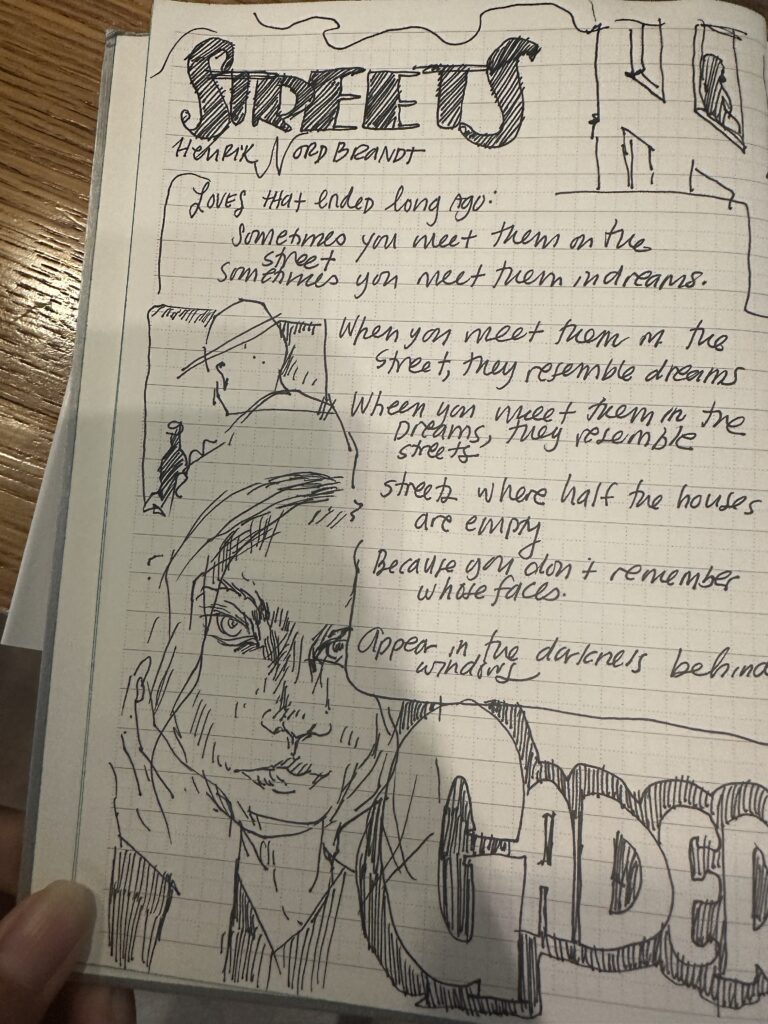 STREETS
HENRIK NORDBRANDT
Loves that ended long ago:
Sometimes you meet them on the
street
Sometimes you meet them in dreams.
When you meet them in the
street, they resemble dreams
Wheen you meet them in the
Dreams, they resemble
streets
streets where half the houses
are empty
Because you don't remember
whose faces.
Appear in the darkness behind
GADED